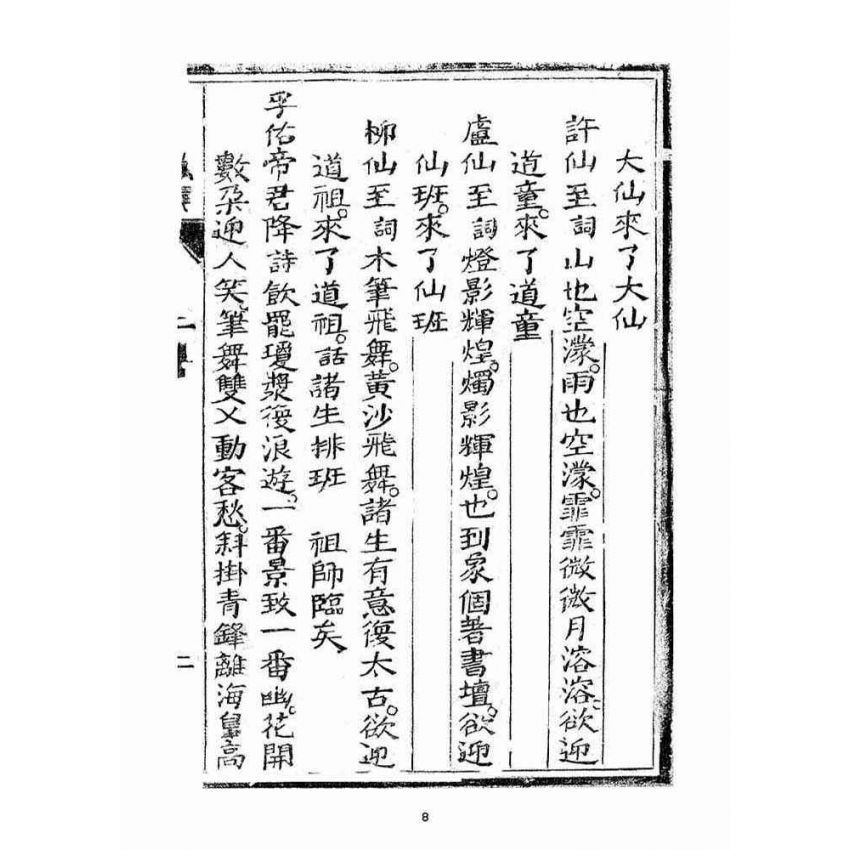 大仙來了大仙
許仙至詞山也空濛。雨也空濛。霏霏微微月溶溶。欲迎
道童。來了道童
盧仙至詞燈影輝煌。燭影輝煌。也到象個著書壇。欲迎
仙班。來了仙班
柳仙至詞木筆飛舞。黃沙飛舞。諸生有意復太古。欲迎
道祖。來了道祖。話諸生排班　祖師臨矣
孚佑帝君降詩飲罷瓊漿復浪遊。一番景致一番幽。花開
數朶迎人笑。筆舞雙乂動客愁。斜掛青鋒離海嶌高
二
8